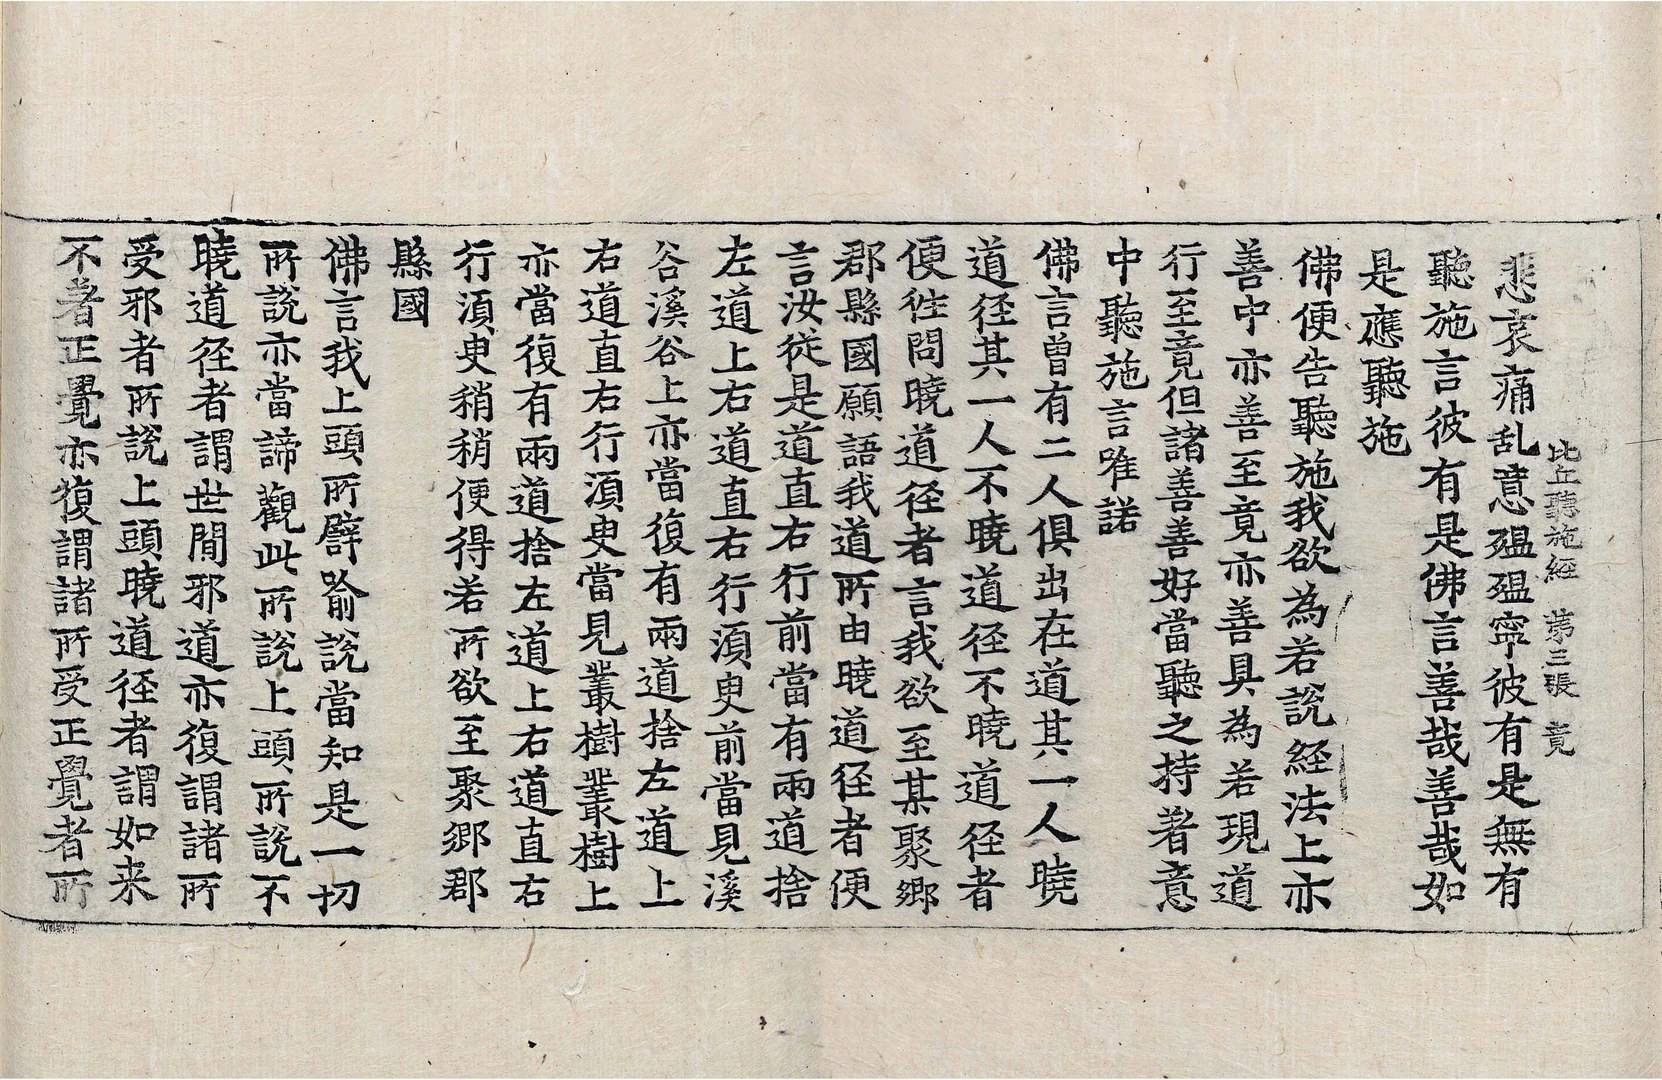 比丘聽施經 第三張 竟
悲哀痛乱意殟殟寧彼有是無有
聽施言彼有是佛言善哉善哉如
是應聽施
佛便告聽施我欲為若說経法上亦
善中亦善至竟亦善具為若現道
行至竟但諸善善好當聽之持著意
中聽施言唯諾
佛言曾有二人俱出在道其一人曉
道径其一人不曉道径不曉道径者
便徃問曉道径者言我欲至某聚鄉
郡縣國願語我道所由曉道径者便
言汝從是道直右行前當有兩道捨
左道上右道直右行湏臾前當見溪
谷溪谷上亦當復有兩道捨左道上
右道直右行湏臾當見叢樹叢樹上
亦當復有兩道捨左道上右道直右
行湏臾稍稍便得若所欲至聚鄉郡
縣國
佛言我上頭所譬喻說當知是一切
所說亦當諦觀此所說上頭所說不
曉道径者謂世間邪道亦復謂諸所
受邪者所說上頭曉道径者謂如来
不著正覺亦復謂諸所受正覺者所